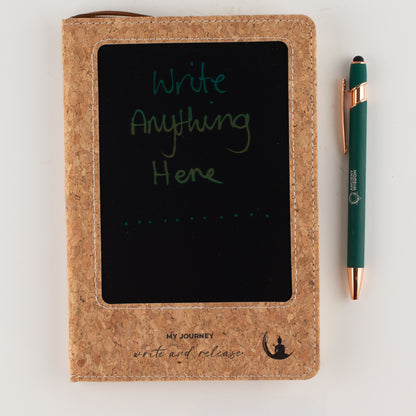 Write
Anything
Here
MY JOURNEY
write and release
ANCIENT
WISDOM